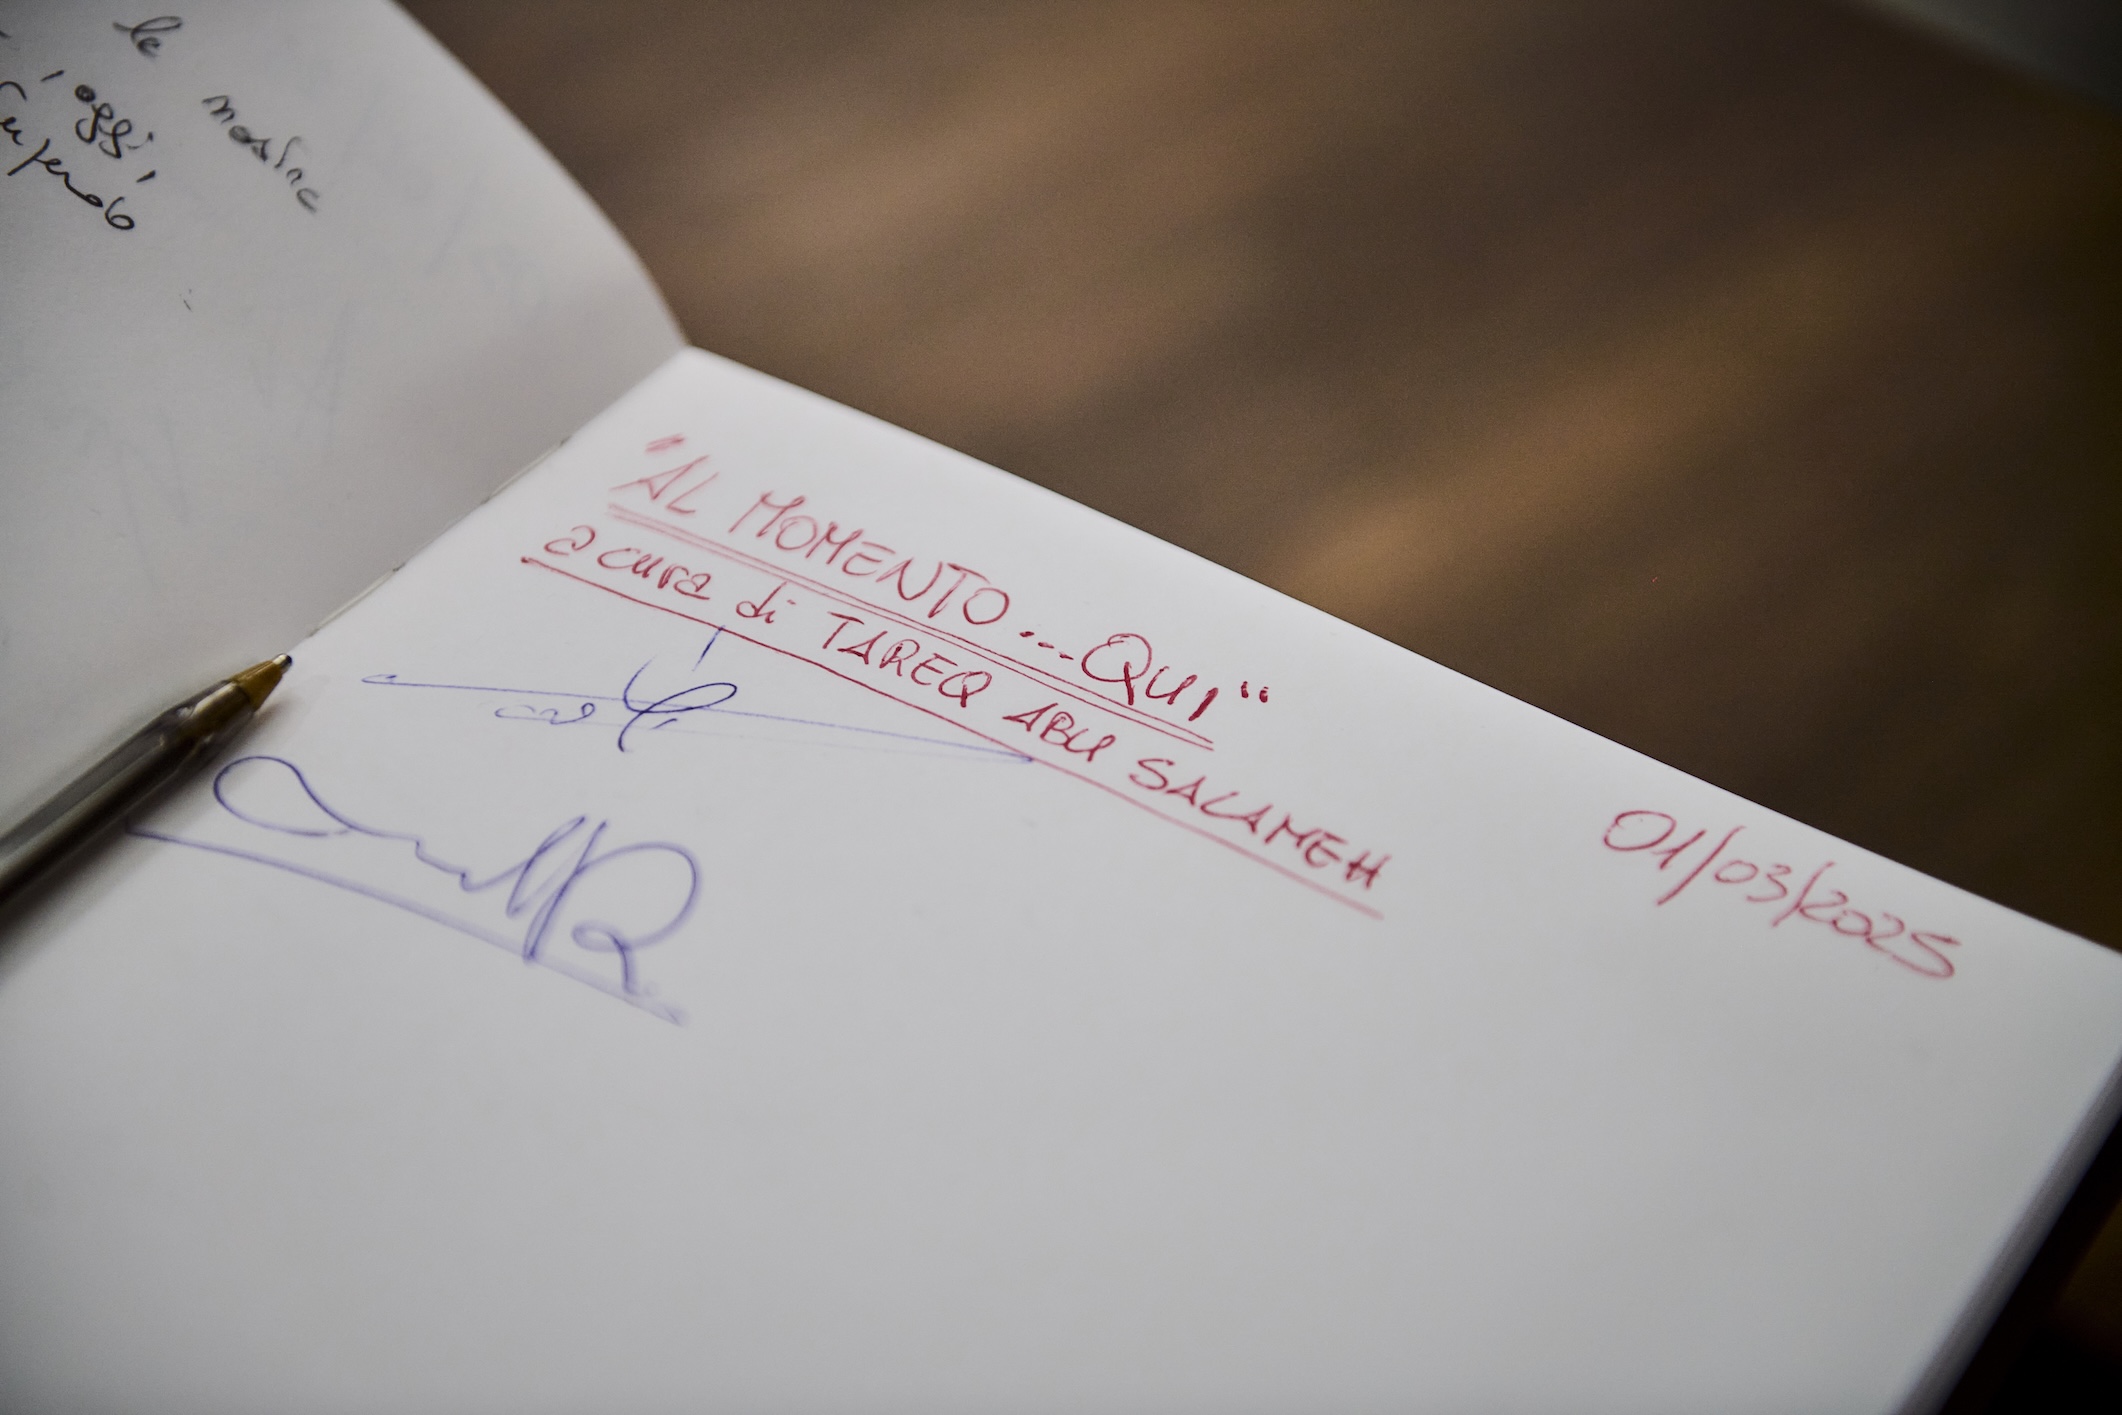 le
nostre
oggi,
"AL MOMENTO...QUI"
a cura di TAREQ ABU SALAMEH
01/03/2025